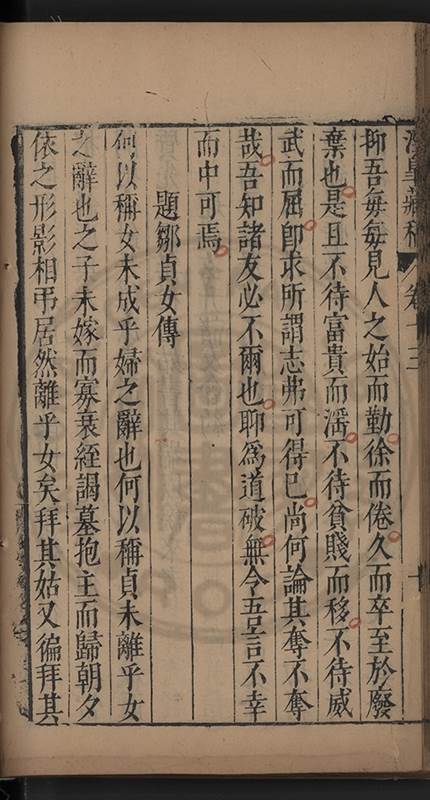 涇臯藏稿 卷十三
抑吾每每見人之始而勤徐而倦久而卒至於廢
棄也是且不待富貴而滛不待貧賤而移不待威
武而屈卽求所謂志弗可得已尚何論其奪不奪
哉吾知諸友必不爾也聊為道破無令吾言不幸
而中可焉
題鄒貞女傳
何以稱女未成乎婦之辭也何以稱貞未離乎女
之辭也之子未嫁而寡衰絰謁墓抱主而歸朝夕
依之形影相弔居然離乎女矣拜其姑又徧拜其